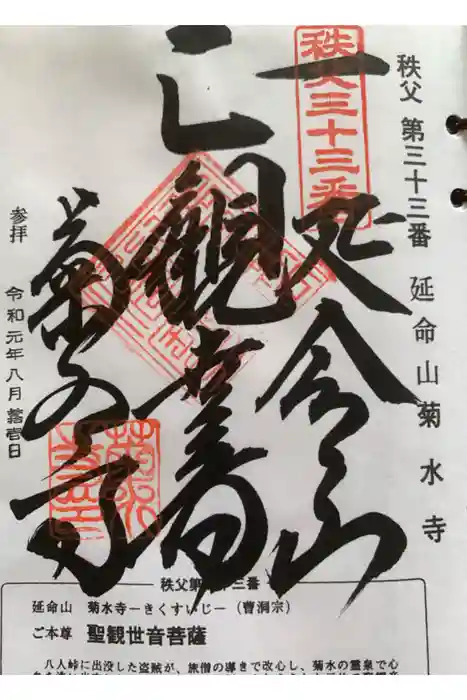 秩父 第三十三番 延命山菊水寺
秩父三十三番
延命山
観世音
菊水寺
参拝 令和元年八月
秩父第三十三番
延命山 菊水寺―きくすいじ―(曹洞宗)
ご本尊 聖観世音菩薩
八人峠に出没した盗賊が、旅僧の導きで改心し、菊水の霊泉で心